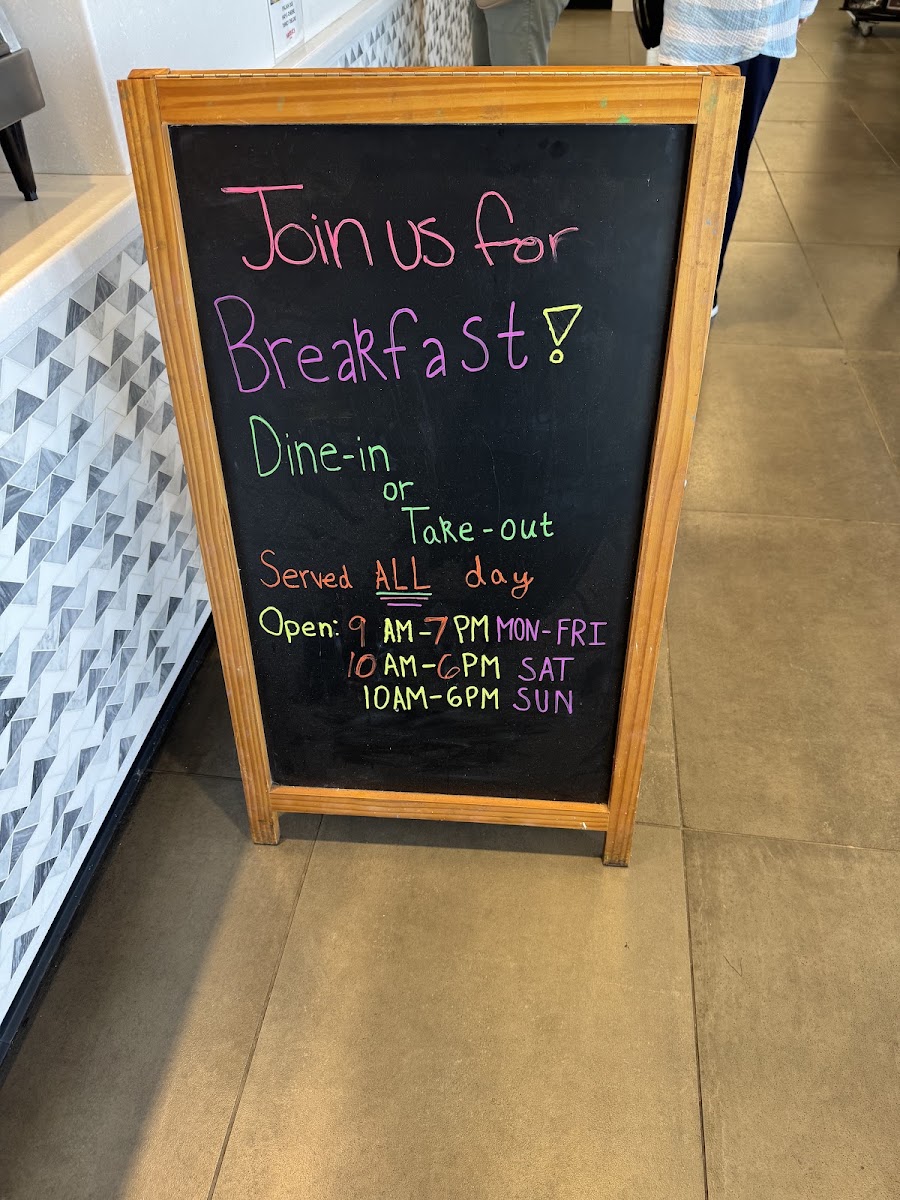 Join us for
Breakfast!
Dine-in
or
Take-out
Served ALL day
Open: 9 AM-7 PM MON-FRI
10 AM-6PM SAT
10AM-6PM SUN